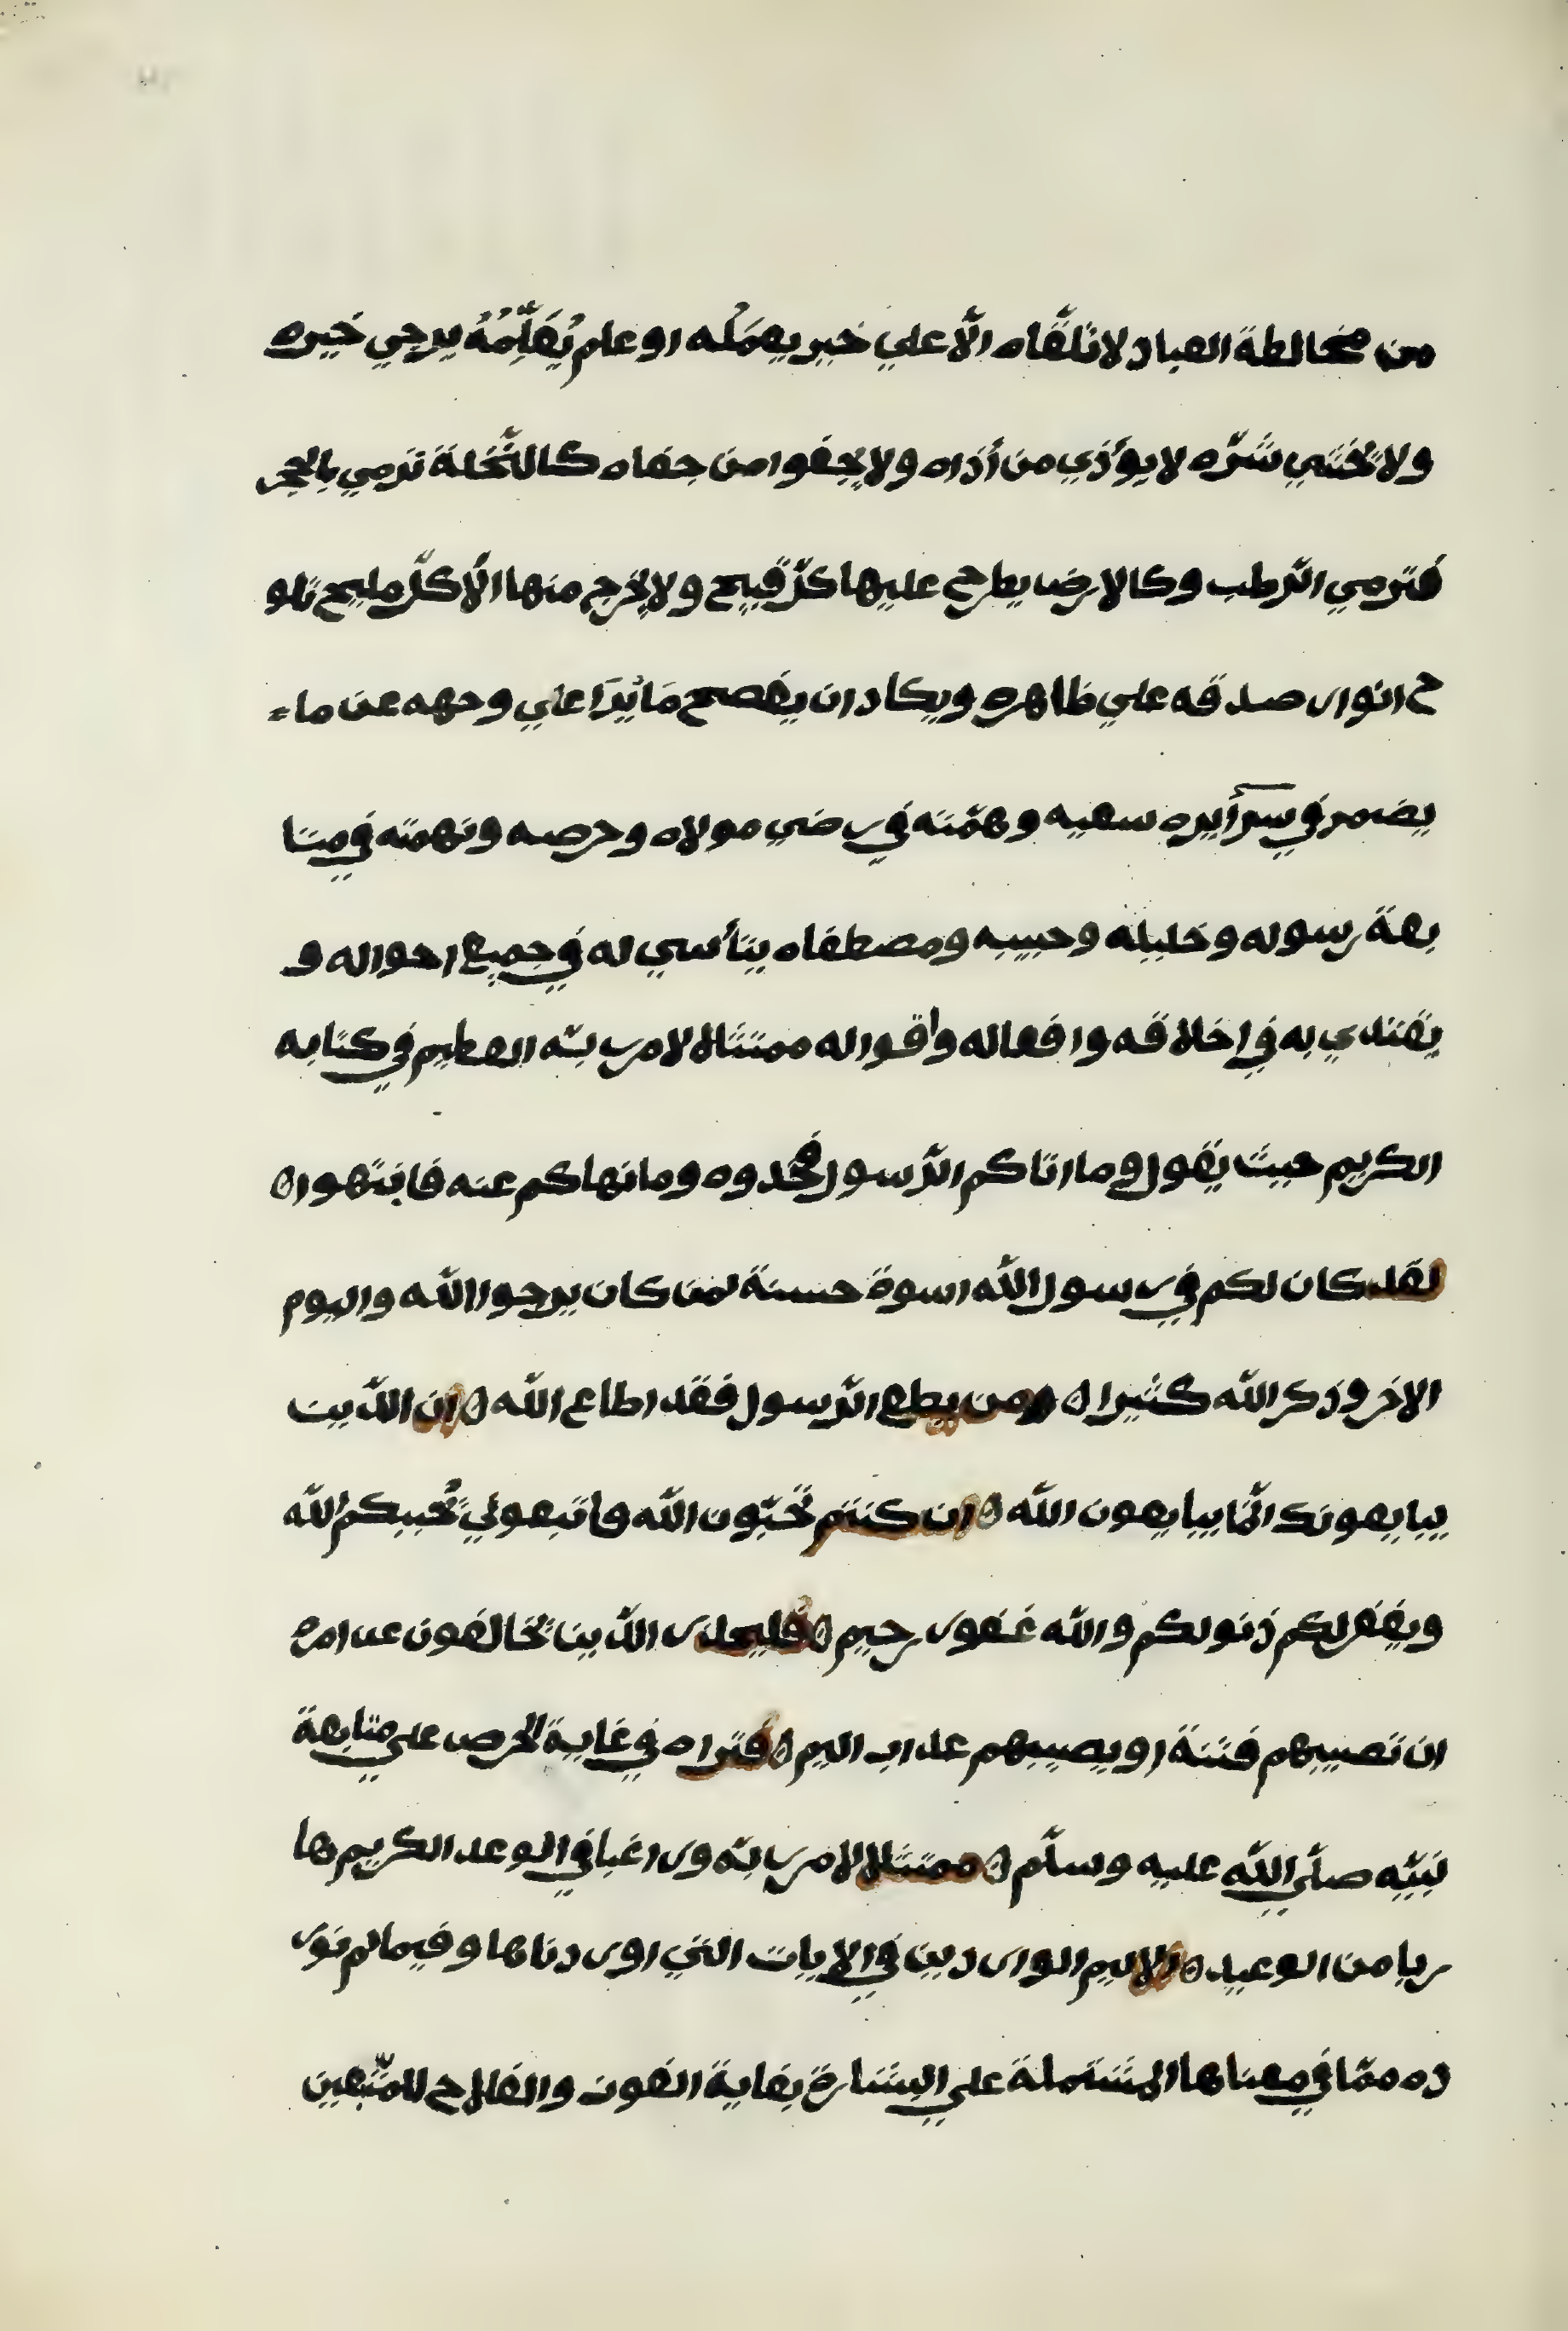 من مخالطة العباد لا تلقّاه الّا علي خير يعمَلُه او علم يُعَلِّمُهُ يرجي خيره
ولا تخشي شرّه لا يوذي من أذاه ولا يجفوا من جفاه كالنّخلة ترمي بالحجر
فترمي الرّطب وكالارض يطرح عليها كلّ قبيح ولا يخرج منها الّا كلّ مليح تلو
ح انوار صدقه علي ظاهره ويكاد ان يفصح مَا يُرَا علي وجهه عن ما
يضمر في سرآيره سعيه وهمّته في رضي مولاه وحرصه ونهمته في متا
بعة رسوله وخليله وحبيبه ومصطفاه يتأسي له في جميع احواله و
يقتدي به في اخلاقه وافعاله واقواله ممتثالا لامر ربّه العظيم في كتابه
الكريم حيث يقول وما اتاكم الرّسول فخدوه وما نهاكم عنه فانتهوا ه
لقد كان لكم في رسول اللّه اسوة حسنة لمن كان يرجوا اللّه واليوم
الاخر وذكر اللّه كثيرا ه ومن يطع الرّسول فقد اطاع اللّه ه ان الذّين
يبايعونك انّما يبايعون اللّه ه ان كنتم تحبّون اللّه فاتبعوني يُحببكم اللّه
ويغفر لكم ذنوبكم واللّه غفور رحيم ه فليحذر الذّين يخالفون عن امره
ان تصيبهم فتنة او يصيبهم عذاب اليم ه فتراه في غاية الحرص علي متابعة
نبيّه صلّي اللّه عليه وسلّم ه ممتثالا لامر ربّه وراغبا في الوعد الكريم ها
ربا من الوعيد ه الاليم الواردين في الايات التي اوردناها وفيما لم نور
ده ممّا في معناها المشتملة علي البشارة بغاية الفوز والفلاح للمتّبعين